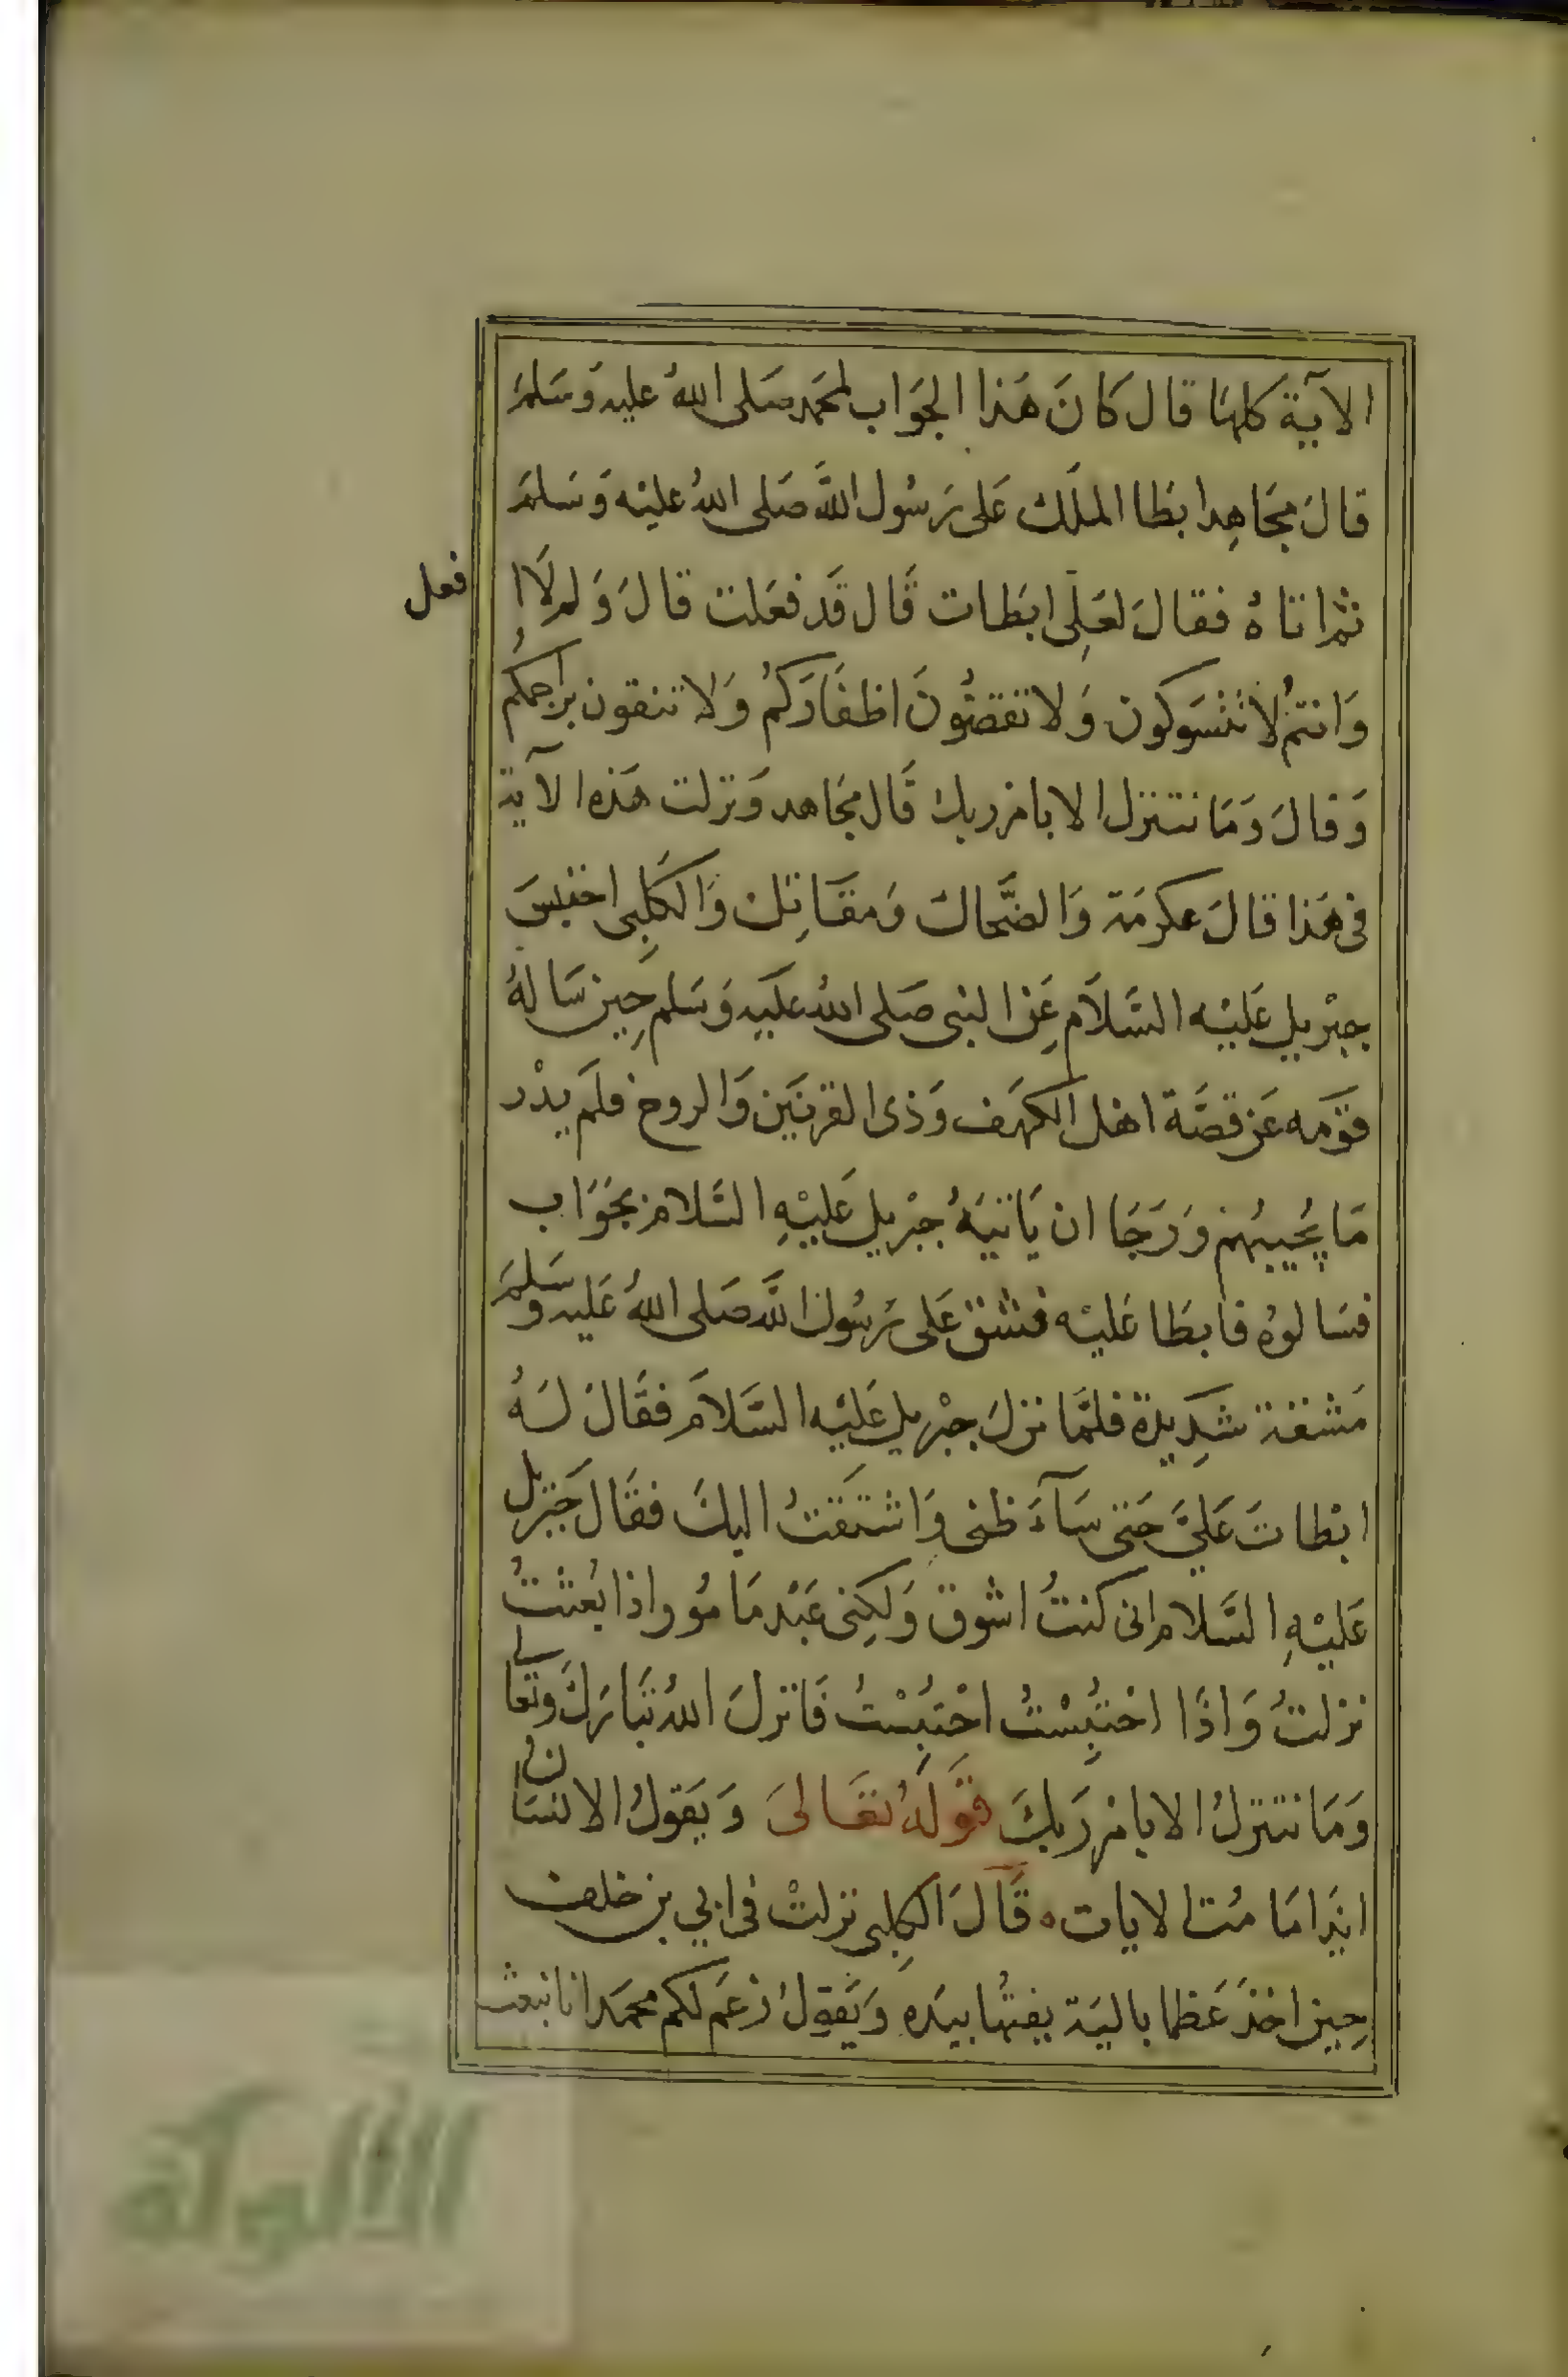 الآية كلها قال كَانَ هَذا الجوَاب لمحمد صَلى اللهُ عليه وَسَلمَ
قالَ مجَاهِد ابطَا الملَك عَلى رَسُول اللَّه صَلى اللهُ عليْه وَسَلمَ
ثم اتاهُ فقالَ لعَلِى ابَطات قَال قَد فعَلت قالَ وَلم لَا ا
فعل
وَانتمُ لا تتسَوكون وَلا تقصُّونَ اظفَارَكمُ وَلا تنقون براجمكُم
وَقالَ وَمَا نتنزل الا بامر ربك قَال مجَاهد وَنزلت هَذه الآية
فى هَذا قالَ عكرمَة وَالضَّحاك وَمقَاتِل وَالكَلِبى احتبسَ
جبْريل عَليْه السَّلاَم عَن النبى صَلى اللهُ عليَه وَسَلم حِين سَالهُ
قوَمه عَن قصَّة اهل الكهَف وَذى القرنَين وَالروح فلَم يدْر
مَا يُجيبُهم وَرَجَا ان يَاتيَهُ جبْريل عَليْهِ السَّلام بجَوَاب
فسَالوهُ فابطَا عَليْه فشق عَلى رَسُول اللَّه صَلى اللهُ عَليه وَسَلمَ
مَشقة شَدِيدة فلمَّا نزلَ جبْريل عَليْه السَّلاَم فقَالَ لَهُ
ابْطاتَ عَليَّ حَتى سَآءَ ظنى وَاشتَقتُ اليكَ فقَال جَبريل
عَليْهِ السَّلام انى كنتُ اشوق وَلكِنى عَبْد مَامُور اذا بُعثْتُ
نزلتُ وَاذَا احْتُبِسْتُ احْتَبَسْتُ فَانزلَ اللهُ تبَارَكَ وتعَالى
وَمَا نتنزلُ الا بامر رَبكَ قوَلَهُ تعَالىَ وَيَقولُ الانسَانُ
ائذا مَا مُت الايات ٥ قَالَ الكِلبى نزلتْ فى ابي بن خلف
حِين اخذَ عَظما باليَة يفتهُا بيدَه وَيَقولُ زعَم لكم محمَد انا نبعث